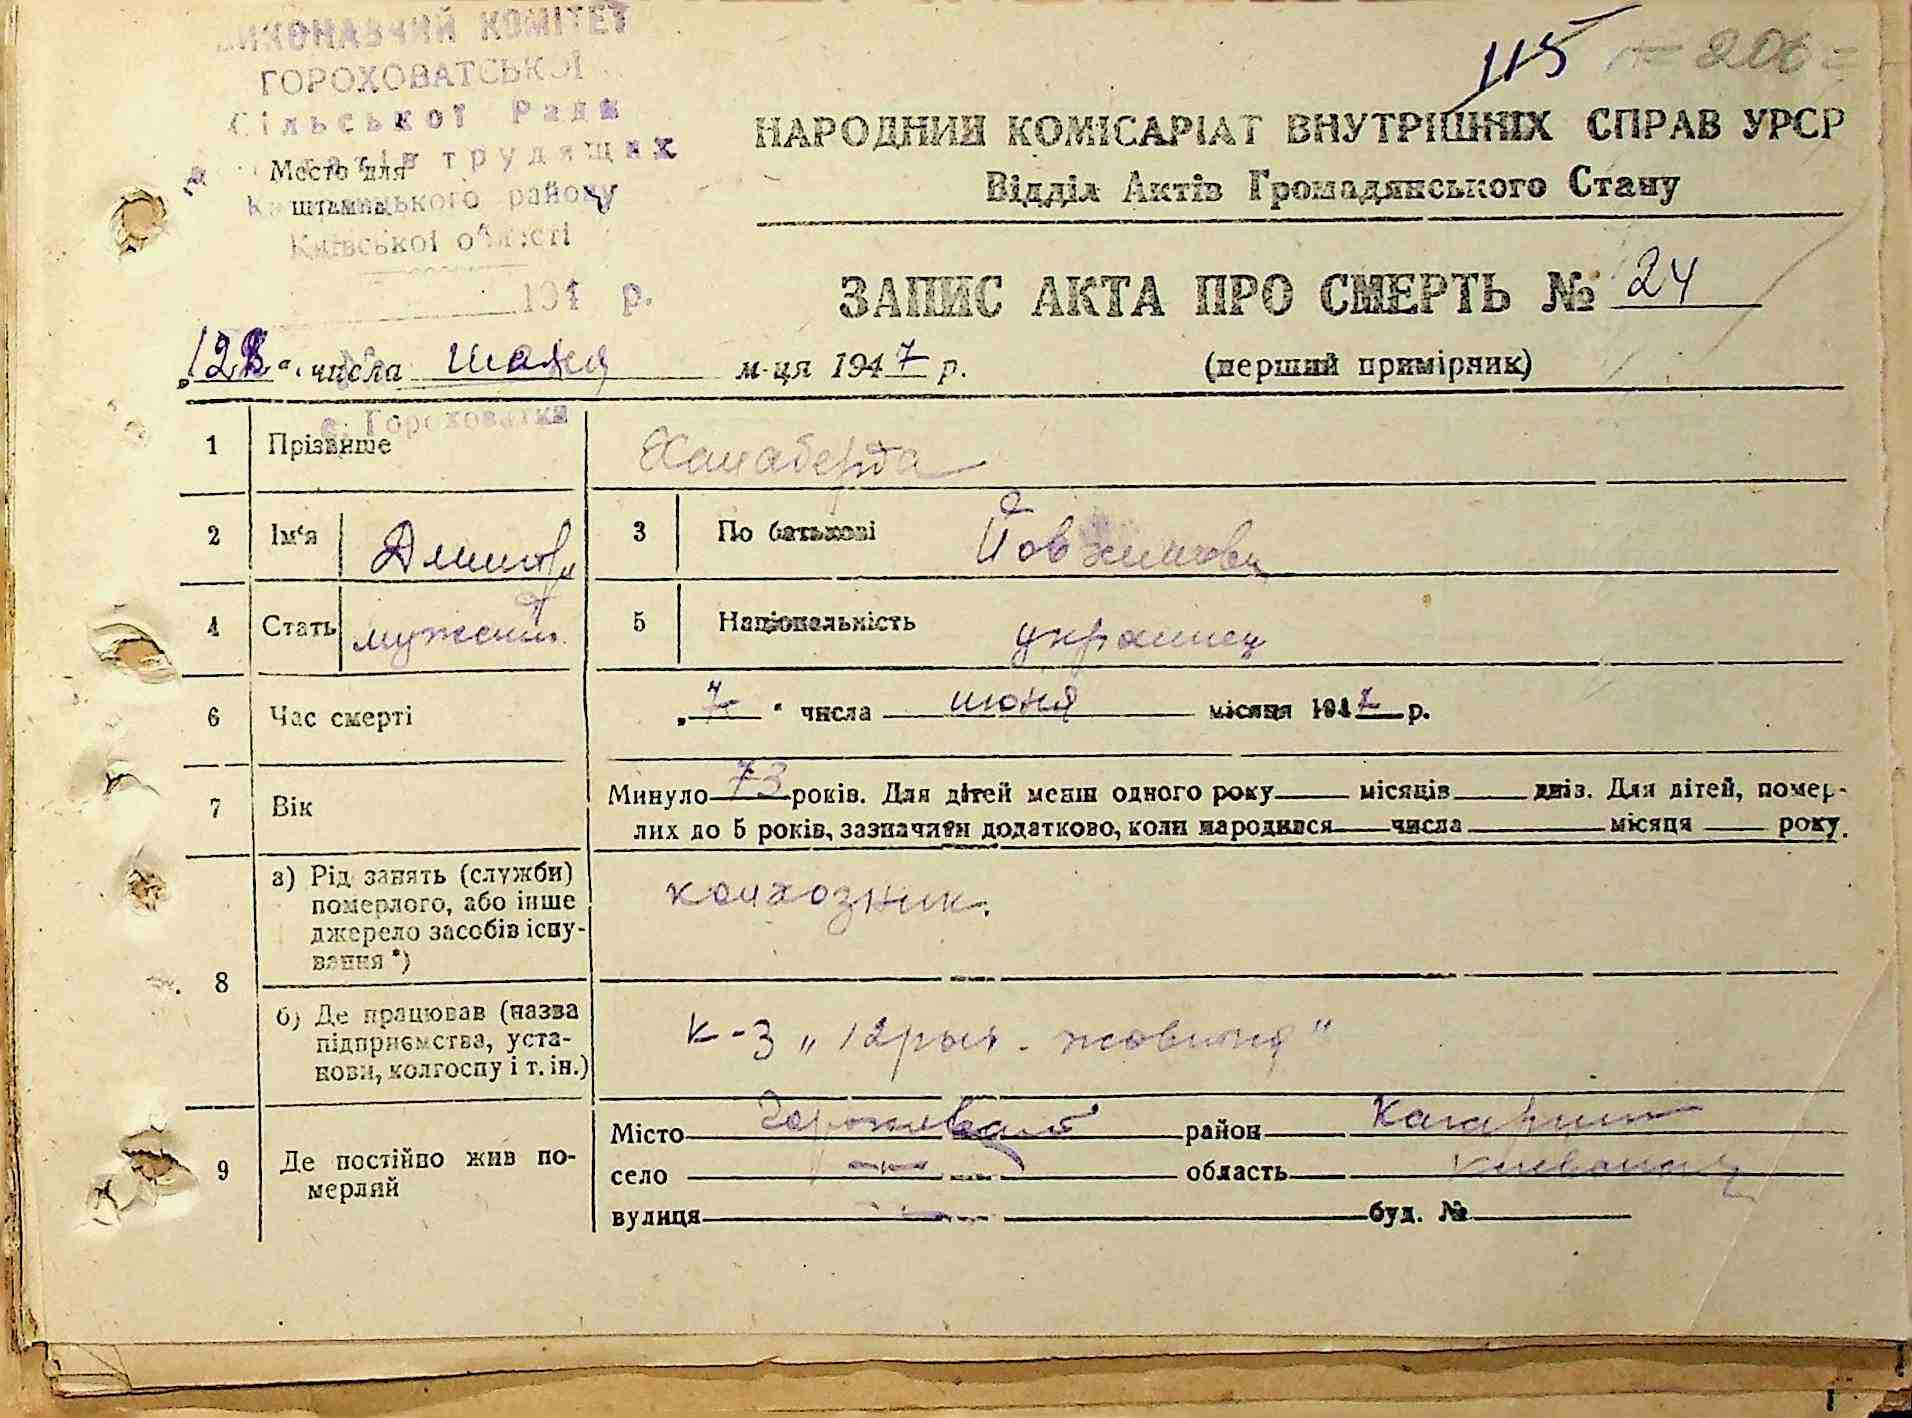 ВИКОНАВЧИЙ КОМІТЕТ
ГОРОХОВАТСЬКОЇ
Сільської Ради
трудящих
Место для
штампа
району
Київської області
194 р.
с. Гороховатка
115 = 206 =
НАРОДНИЙ КОМІСАРІАТ ВНУТРІШНІХ СПРАВ УРСР
Відділ Актів Громадянського Стану
ЗАПИС АКТА ПРО СМЕРТЬ № 24
числа июня м-ця 1947 р. (перший примірник)
1 Прізвище Ханаберда
2 Ім'я Дмитр 3 По батькові Йовхимович
4 Стать мужской 5 Національність украинец
6 Час смерті „7" числа июня місяця 1947 р.
7 Вік Минуло 73 років. Для дітей менш одного року місяців днів. Для дітей, помер-
лих до 5 років, зазначити додатково, коли народився числа місяця року.
8 а) Рід занять (служби)
померлого, або інше
джерело засобів існу-
вання *)
колхозник.
б) Де працював (назва
підприємства, уста-
нови, колгоспу і т. ін.)
к-з „12 рич. жовтня"
9 Де постійно жив по-
мерлий
Місто район Кагарлик
село область Киевская
вулиця буд. №